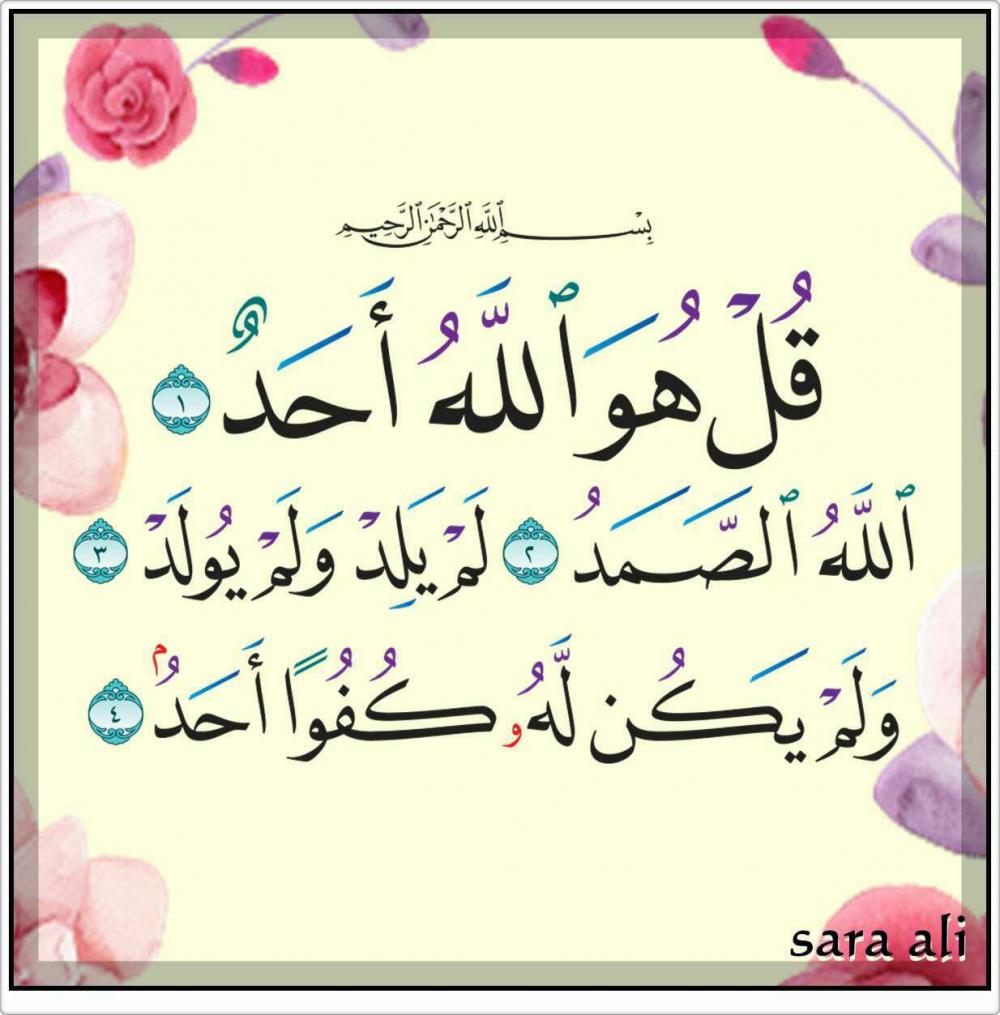 بِسْمِ ٱللَّهِ ٱلرَّحْمَٰنِ ٱلرَّحِيمِ
قُلْ هُوَ ٱللَّهُ أَحَدٌ ١
ٱللَّهُ ٱلصَّمَدُ ٢ لَمْ يَلِدْ وَلَمْ يُولَدْ ٣
وَلَمْ يَكُن لَّهُۥ كُفُوًا أَحَدُۢ ٤
sara ali